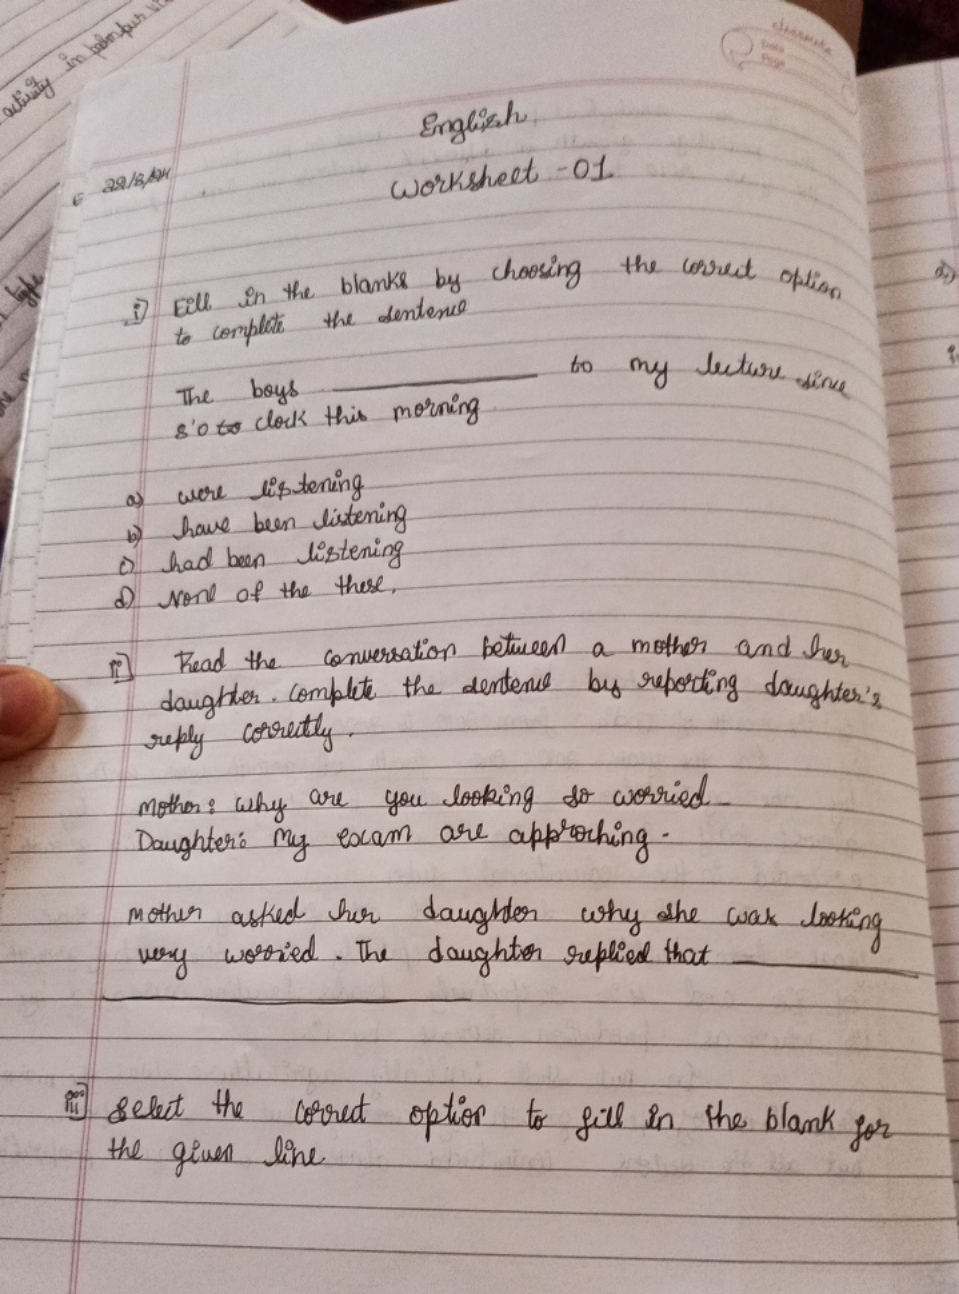 activity in
classmate
Date
Page
English
28/8/24
Worksheet - 01
i) Fill in the blanks by choosing the correct option
to complete the sentence
The boys ____________ to my lecture since
8'o to clock this morning
a) were listening
b) have been listening
c) had been listening
d) None of the these.
ii] Read the conversation between a mother and her
daughter. Complete the sentence by reporting daughter's
reply correctly.
Mother: Why are you looking so worried
Daughter: My exam are approching.
Mother asked her daughter why she was looking
very worried. The daughter replied that ____________
____________
iii] Select the correct option to fill in the blank for
the given line